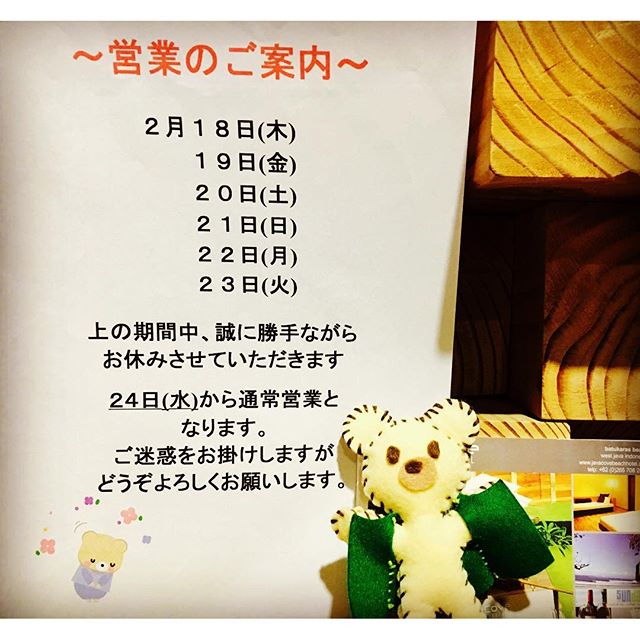 ～営業のご案内～
２月１８日(木)
１９日(金)
２０日(土)
２１日(日)
２２日(月)
２３日(火)
上の期間中、誠に勝手ながら
お休みさせていただきます
２４日(水)から通常営業と
なります。
ご迷惑をお掛けしますが
どうぞよろしくお願いします。
batukaras bea
west java indone
www.javacovebeachhotel.